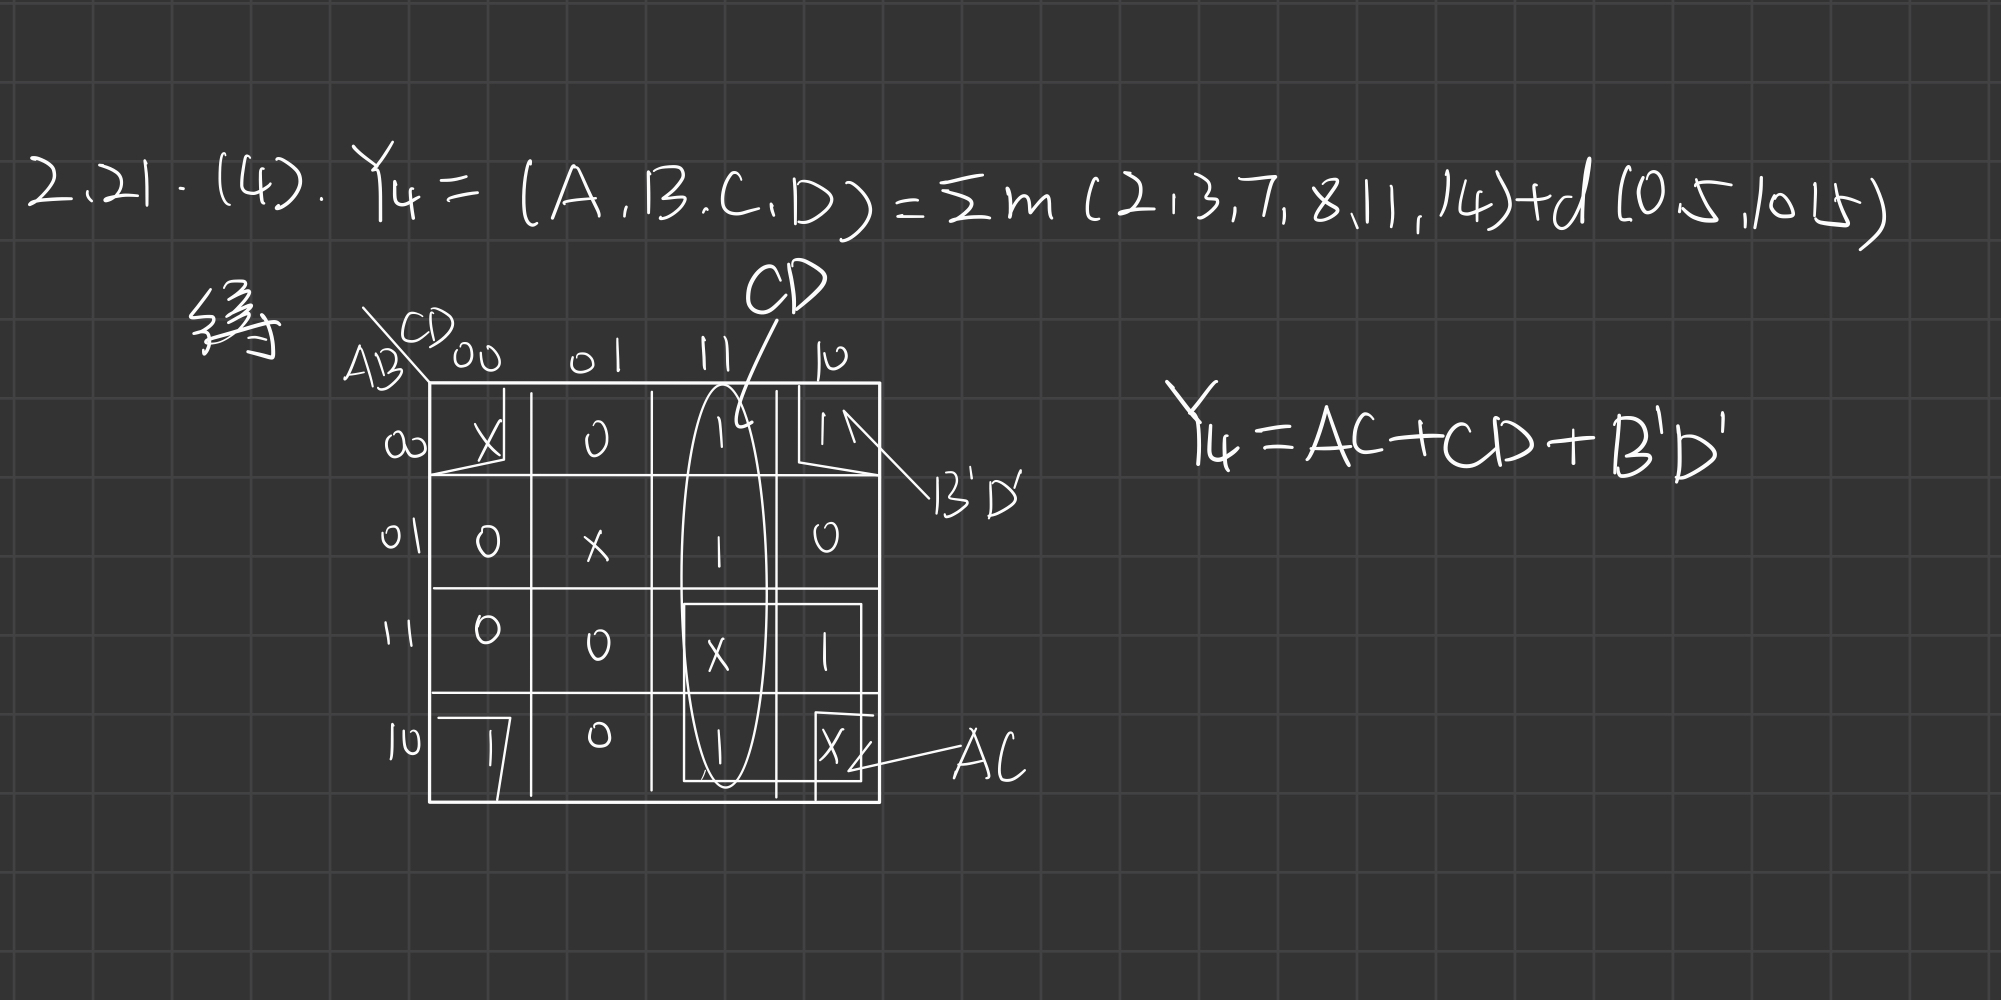 2.21.(4). Y4 = (A,B.C,D) = Σm(2,3,7,8,11,14)+d(0.5,10 15)
CD
CD
AB 00 01 11 10
00 X 0 1 1
B'D'
01 0 X 1 0
11 0 0 X 1
10 1 0 1 X
AC
Y4=AC+CD+B'D'